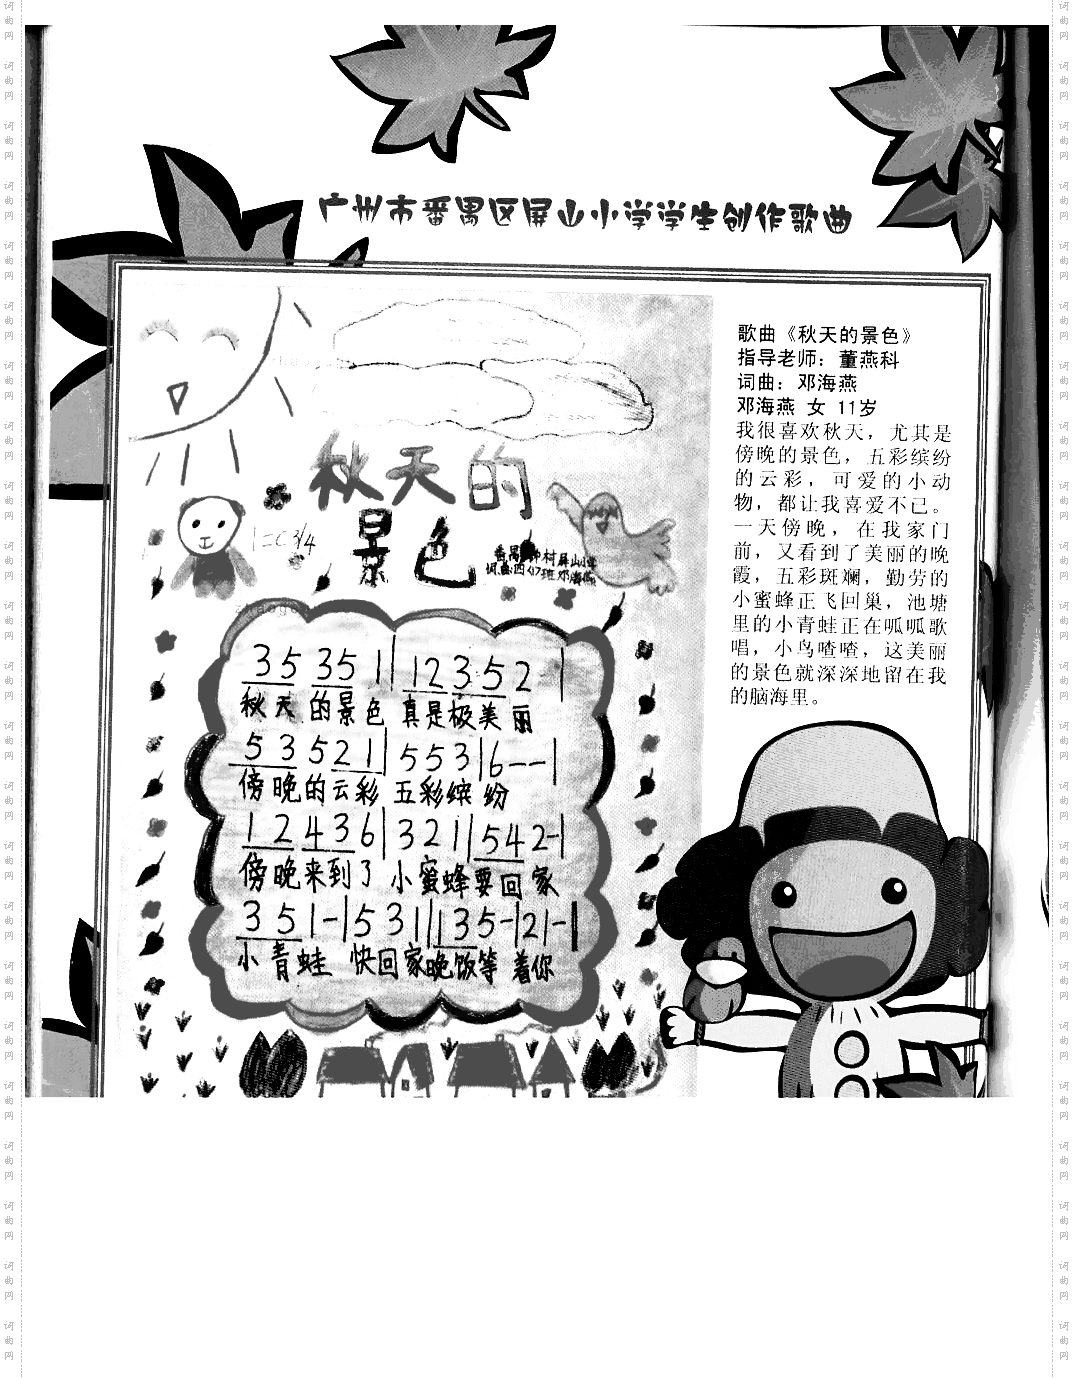 广州市番禺区屏山小学学生创作歌曲
歌曲《秋天的景色》
指导老师：董燕科
词曲：邓海燕
邓海燕 女 11岁
我很喜欢秋天，尤其是
傍晚的景色，五彩缤纷
的云彩，可爱的小动
物，都让我喜爱不已。
一天傍晚，在我家门
前，又看到了美丽的晚
霞，五彩斑斓，勤劳的
小蜜蜂正飞回巢，池塘
里的小青蛙正在呱呱歌
唱，小鸟喳喳，这美丽
的景色就深深地留在我
的脑海里。
秋天的
景色
1=C 3/4
番禺钟村屏山小学
词曲:四(7)班邓海燕
35 35 1| 12 3 5 2 |
秋天的景色 真是极美丽
5 3 5 2 1| 5 5 3 |6 - - |
傍晚的云彩 五彩缤纷
1 2 4 3 6| 3 2 1| 5 4 2 -|
傍晚来到了 小蜜蜂要回家
3 5 1 -| 5 3 1| 1 3 5 -| 2 1 -|
小青蛙 快回家晚饭等着你
词曲网